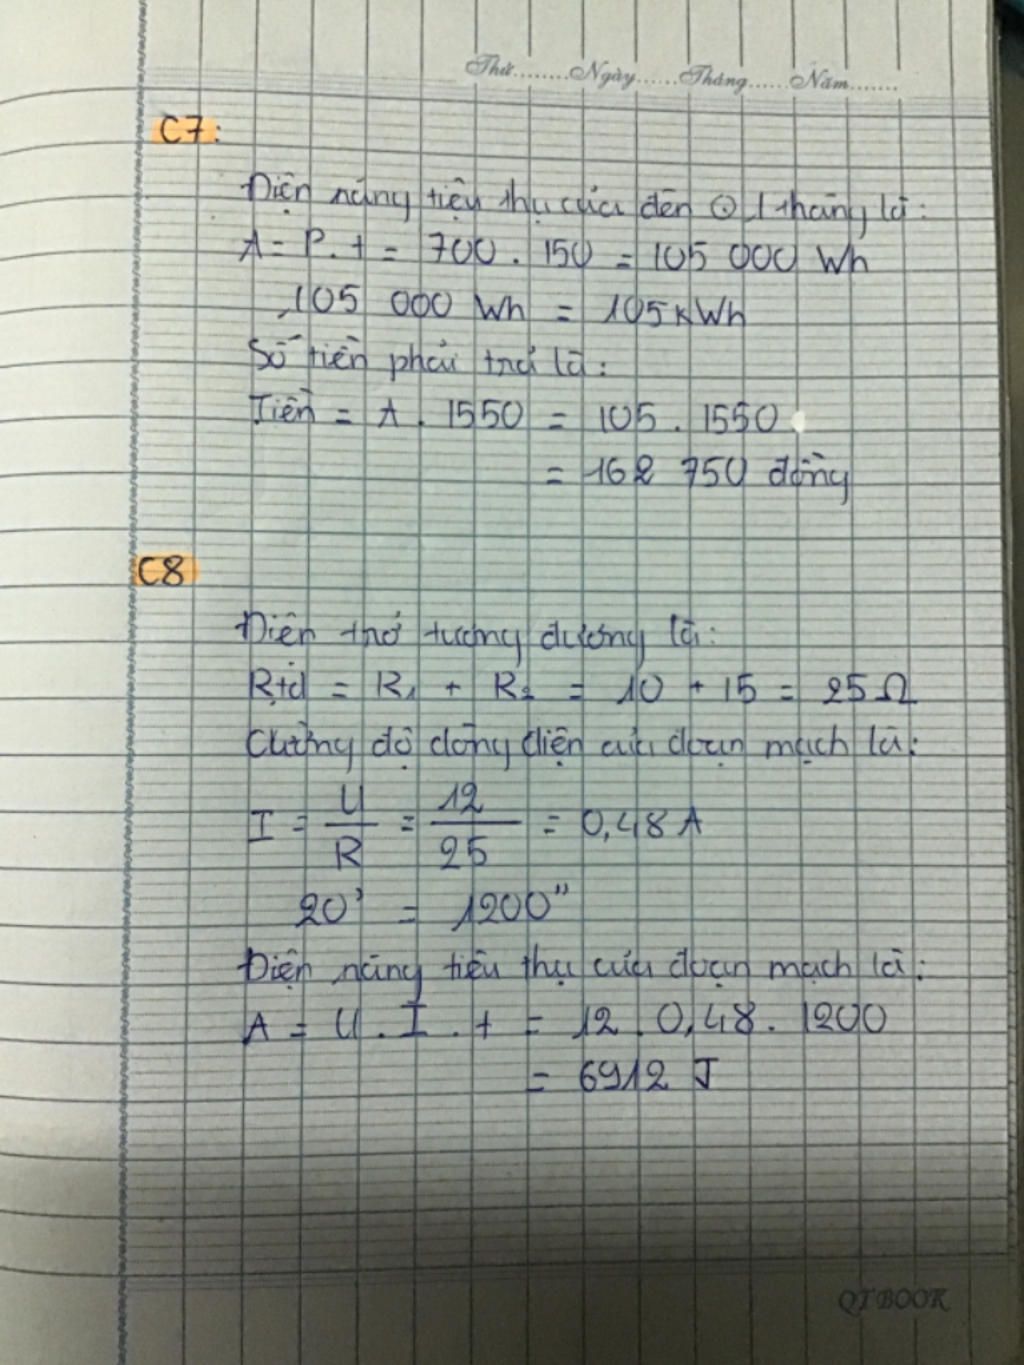 Thứ........Ngày......Tháng......Năm.......
C7:
Điện năng tiêu thụ của đèn ⊙ 1 tháng là:
A = P. t = 700 . 150 = 105 000 Wh
105 000 Wh = 105 kWh
Số tiền phải trả là:
Tiền = A . 1550 = 105 . 1550
= 162 750 đồng
C8
Điện trở tương đương là:
Rtđ = R₁ + R₂ = 10 + 15 = 25 Ω
Cường độ dòng điện của đoạn mạch là:
I = U/R = 12/25 = 0,48 A
20' = 1200"
Điện năng tiêu thụ của đoạn mạch là:
A = U . I . t = 12 . 0,48 . 1200
= 6912 J
QT BOOK